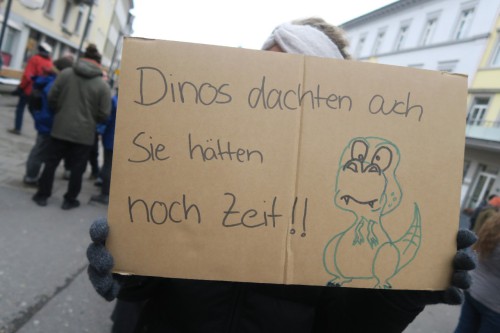 Dinos dachten auch
Sie hätten
noch Zeit!!